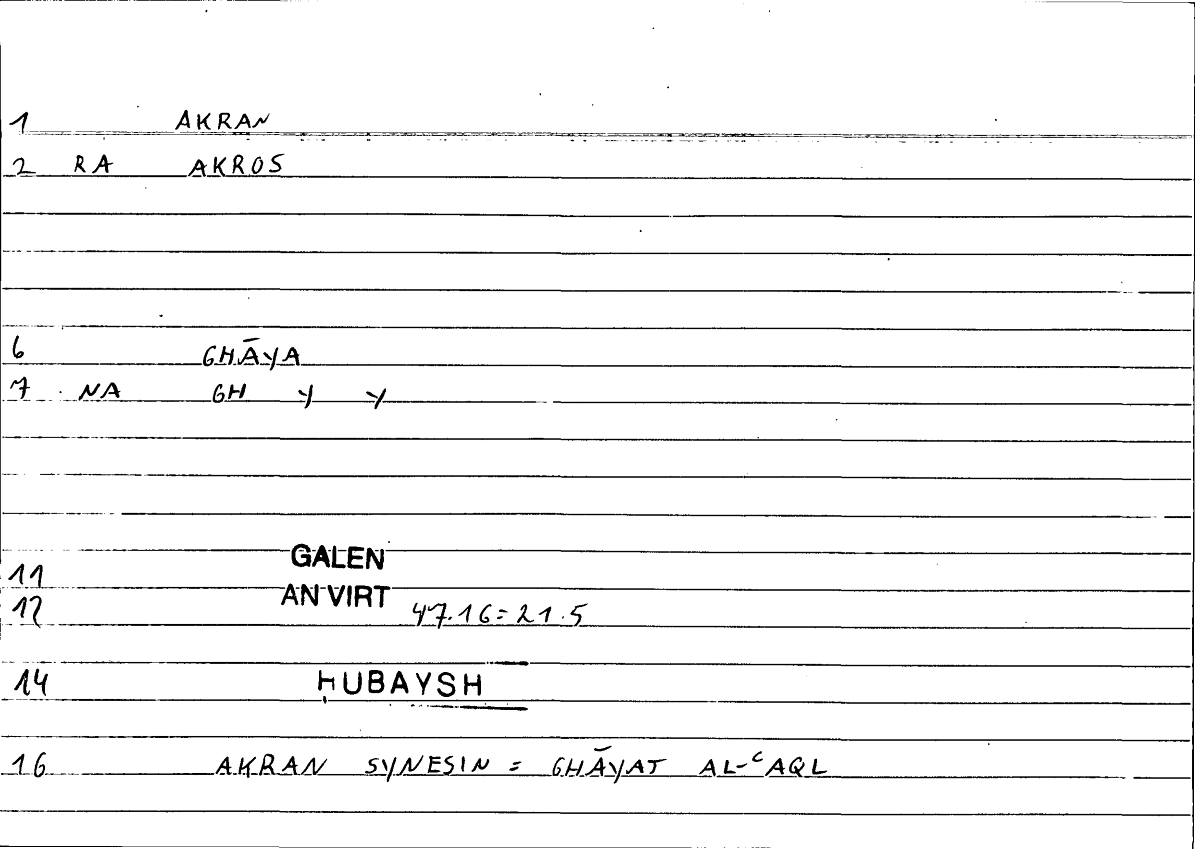 1 AKRAN
2 RA AKROS
6 GHĀYA
7 NA GH Y Y
11 GALEN
12 AN VIRT 47.16=21.5
14 ḤUBAYSH
16 AKRAN SYNESIN = GHĀYAT AL-ᶜAQL